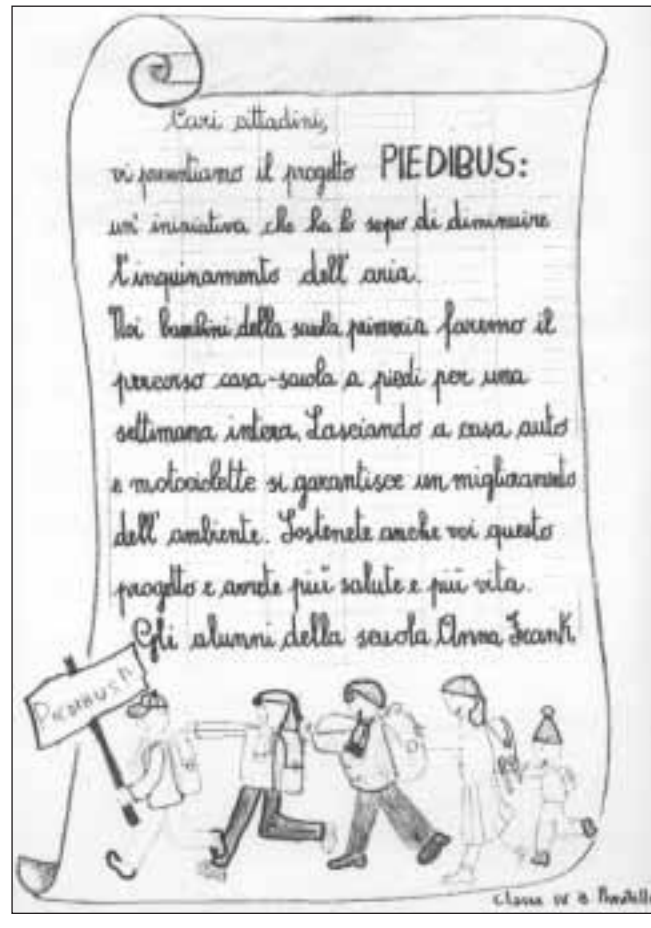 Cari cittadini,
vi presentiamo il progetto PIEDIBUS:
un' iniziativa che ha lo scopo di diminuire
l'inquinamento dell' aria.
Noi bambini della scuola primaria faremo il
percorso casa-scuola a piedi per una
settimana intera. Lasciando a casa auto
e motociclette si garantisce un miglioramento
dell' ambiente. Sostenete anche voi questo
progetto e avrete più salute e più vita.
Gli alunni della scuola Anna Frank
PIEDIBUS
Classe IV B